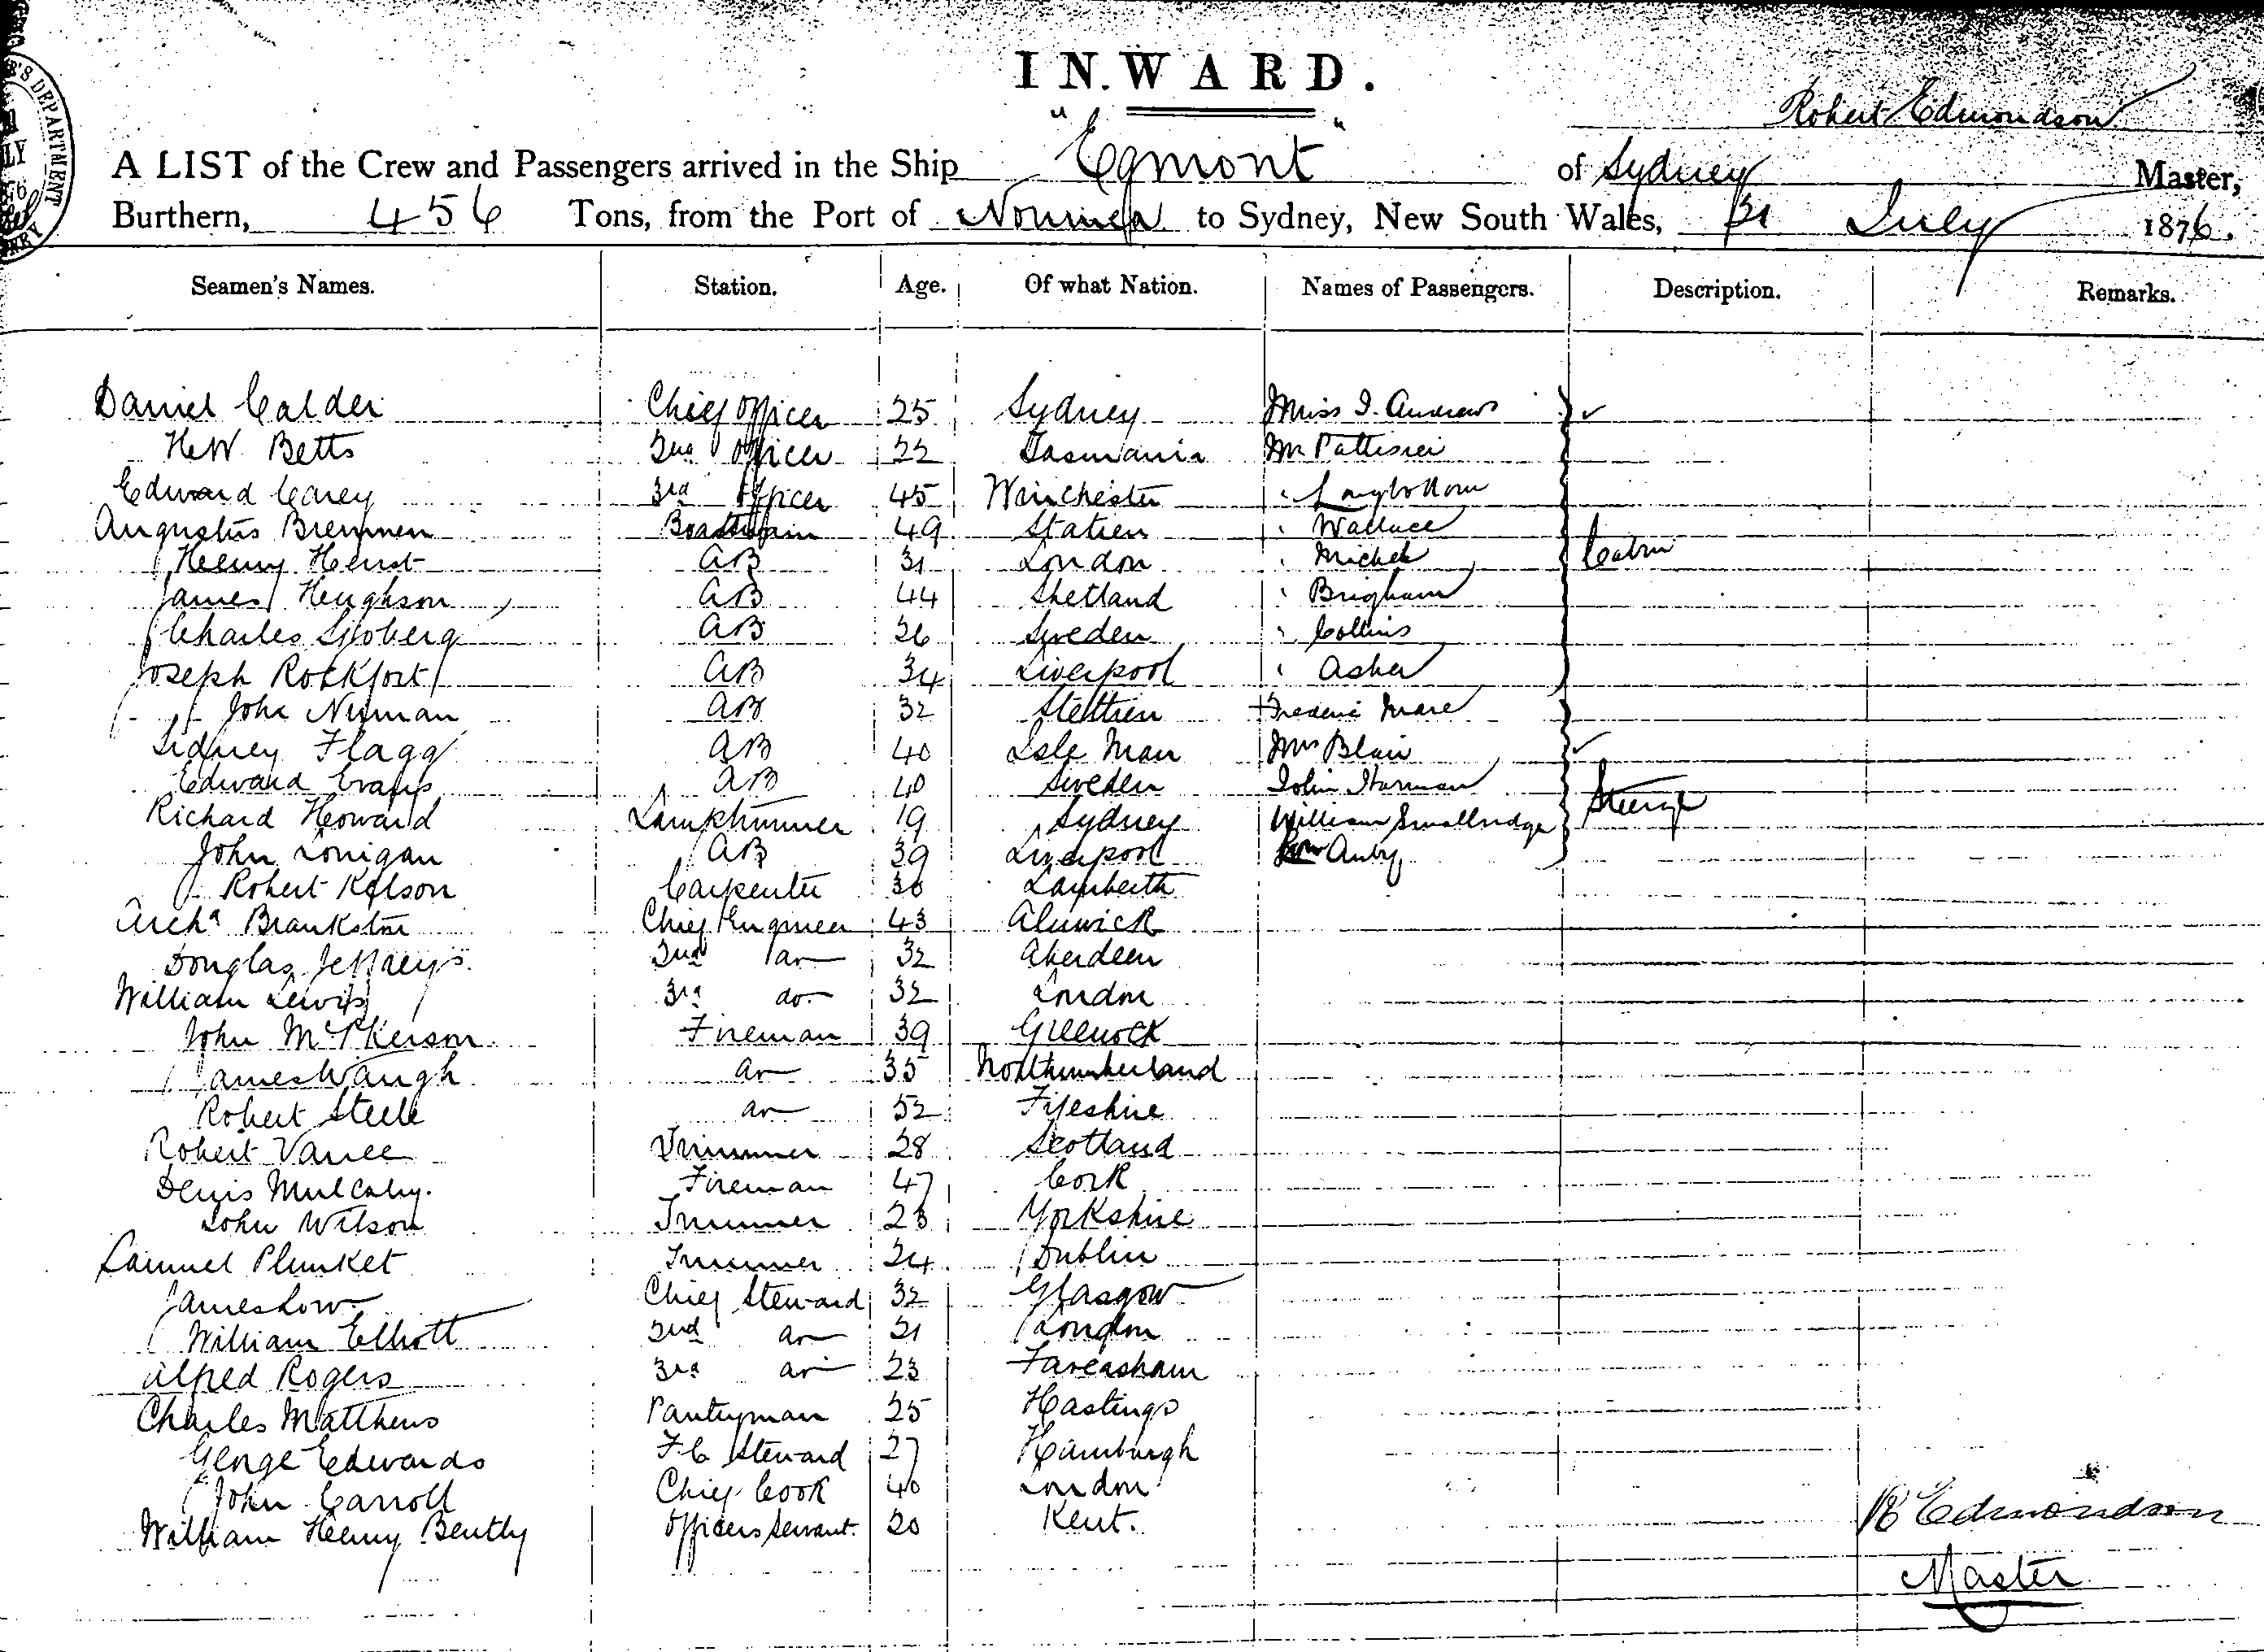 INWARD.
Robert Edmondson
A LIST of the Crew and Passengers arrived in the Ship "Egmont" of Sydney Master,
Burthern, 456 Tons, from the Port of Noumea to Sydney, New South Wales, 31 July 1876.
Seamen's Names. Station. Age. Of what Nation. Names of Passengers. Description. Remarks.
Daniel Calder Chief Officer 25 Sydney Miss I. Andrews
H W Betts 2nd Officer 22 Tasmania Mr
Edward Carey 3rd Officer 45 Winchester " Longbottom
Augustus Bremmen Boatswain 49 " Wallace
Henry Hurst AB 31 London " Michel Cabin
James Hughson AB 44 Shetland " Brigham
Charles Sjoberg AB 26 Sweden " Collins
Joseph Rockfort AB 34 Liverpool " Asher
John Numan AB 32 Stettien Frederic Mare
Sidney Flagg AB 40 Isle Man Mrs Blair
Edward Evans AB 40 Sweden John Harman
Richard Howard Lamptrimmer 19 Sydney William Smallridge Steerage
John Lonigan AB 39 Liverpool Auby
Robert Kelson Carpenter 30 Lambeth
Archd Brankston Chief Engineer 43 Alnwick
Douglas Jeffreys 2nd do 32 Aberdeen
William Lewis 3rd do 32 London
John McPherson Fireman 39 Greenock
James Waugh do 35 Northumberland
Robert Steele do 52 Fifeshire
Robert Vance Trimmer 28 Scotland
Denis Mulcahy. Fireman 47 Cork
John Wilson Trimmer 23 Yorkshire
Samuel Plunket Trimmer 24 Dublin
James Low Chief Steward 32 Glasgow
William Elliott 2nd do 21 London
Alfred Rogers 3rd do 23 Faversham
Charles Matthews Pantryman 25 Hastings
George Edwards F.C Steward 27 Hamburgh
John Carroll Chief Cook 40 London
William Henry Bently Officers Servant. 20 Kent.
R Edmondson
Master